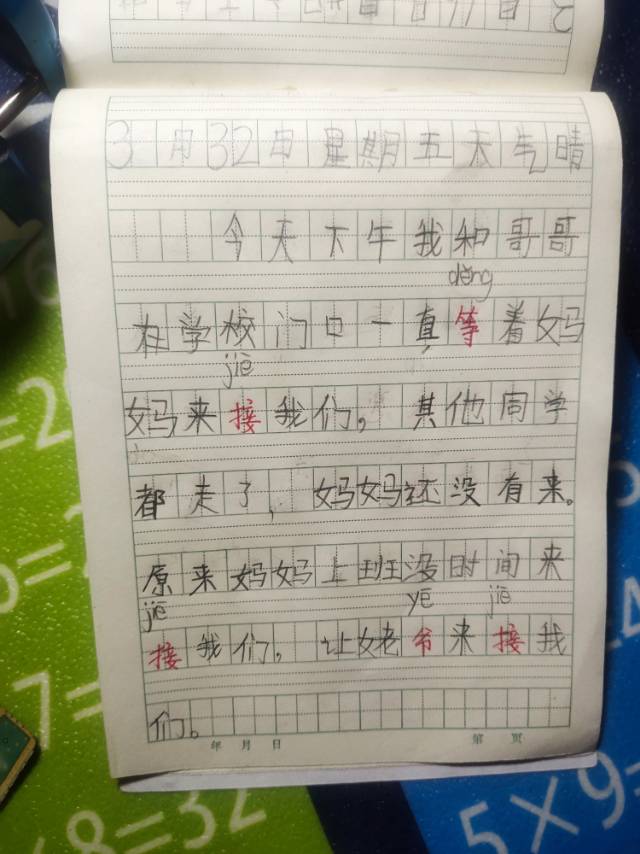 3月32日星期五天气晴
今天下午我和哥哥
děng
在学校门口一真等着妈
jiē
妈来接我们，其他同学
都走了，妈妈还没有来。
原来妈妈上班没时间来
jiē yē jiē
接我们，让姥爷来接我
们。
年 月 日 第 页
5×9=
8=32
7=